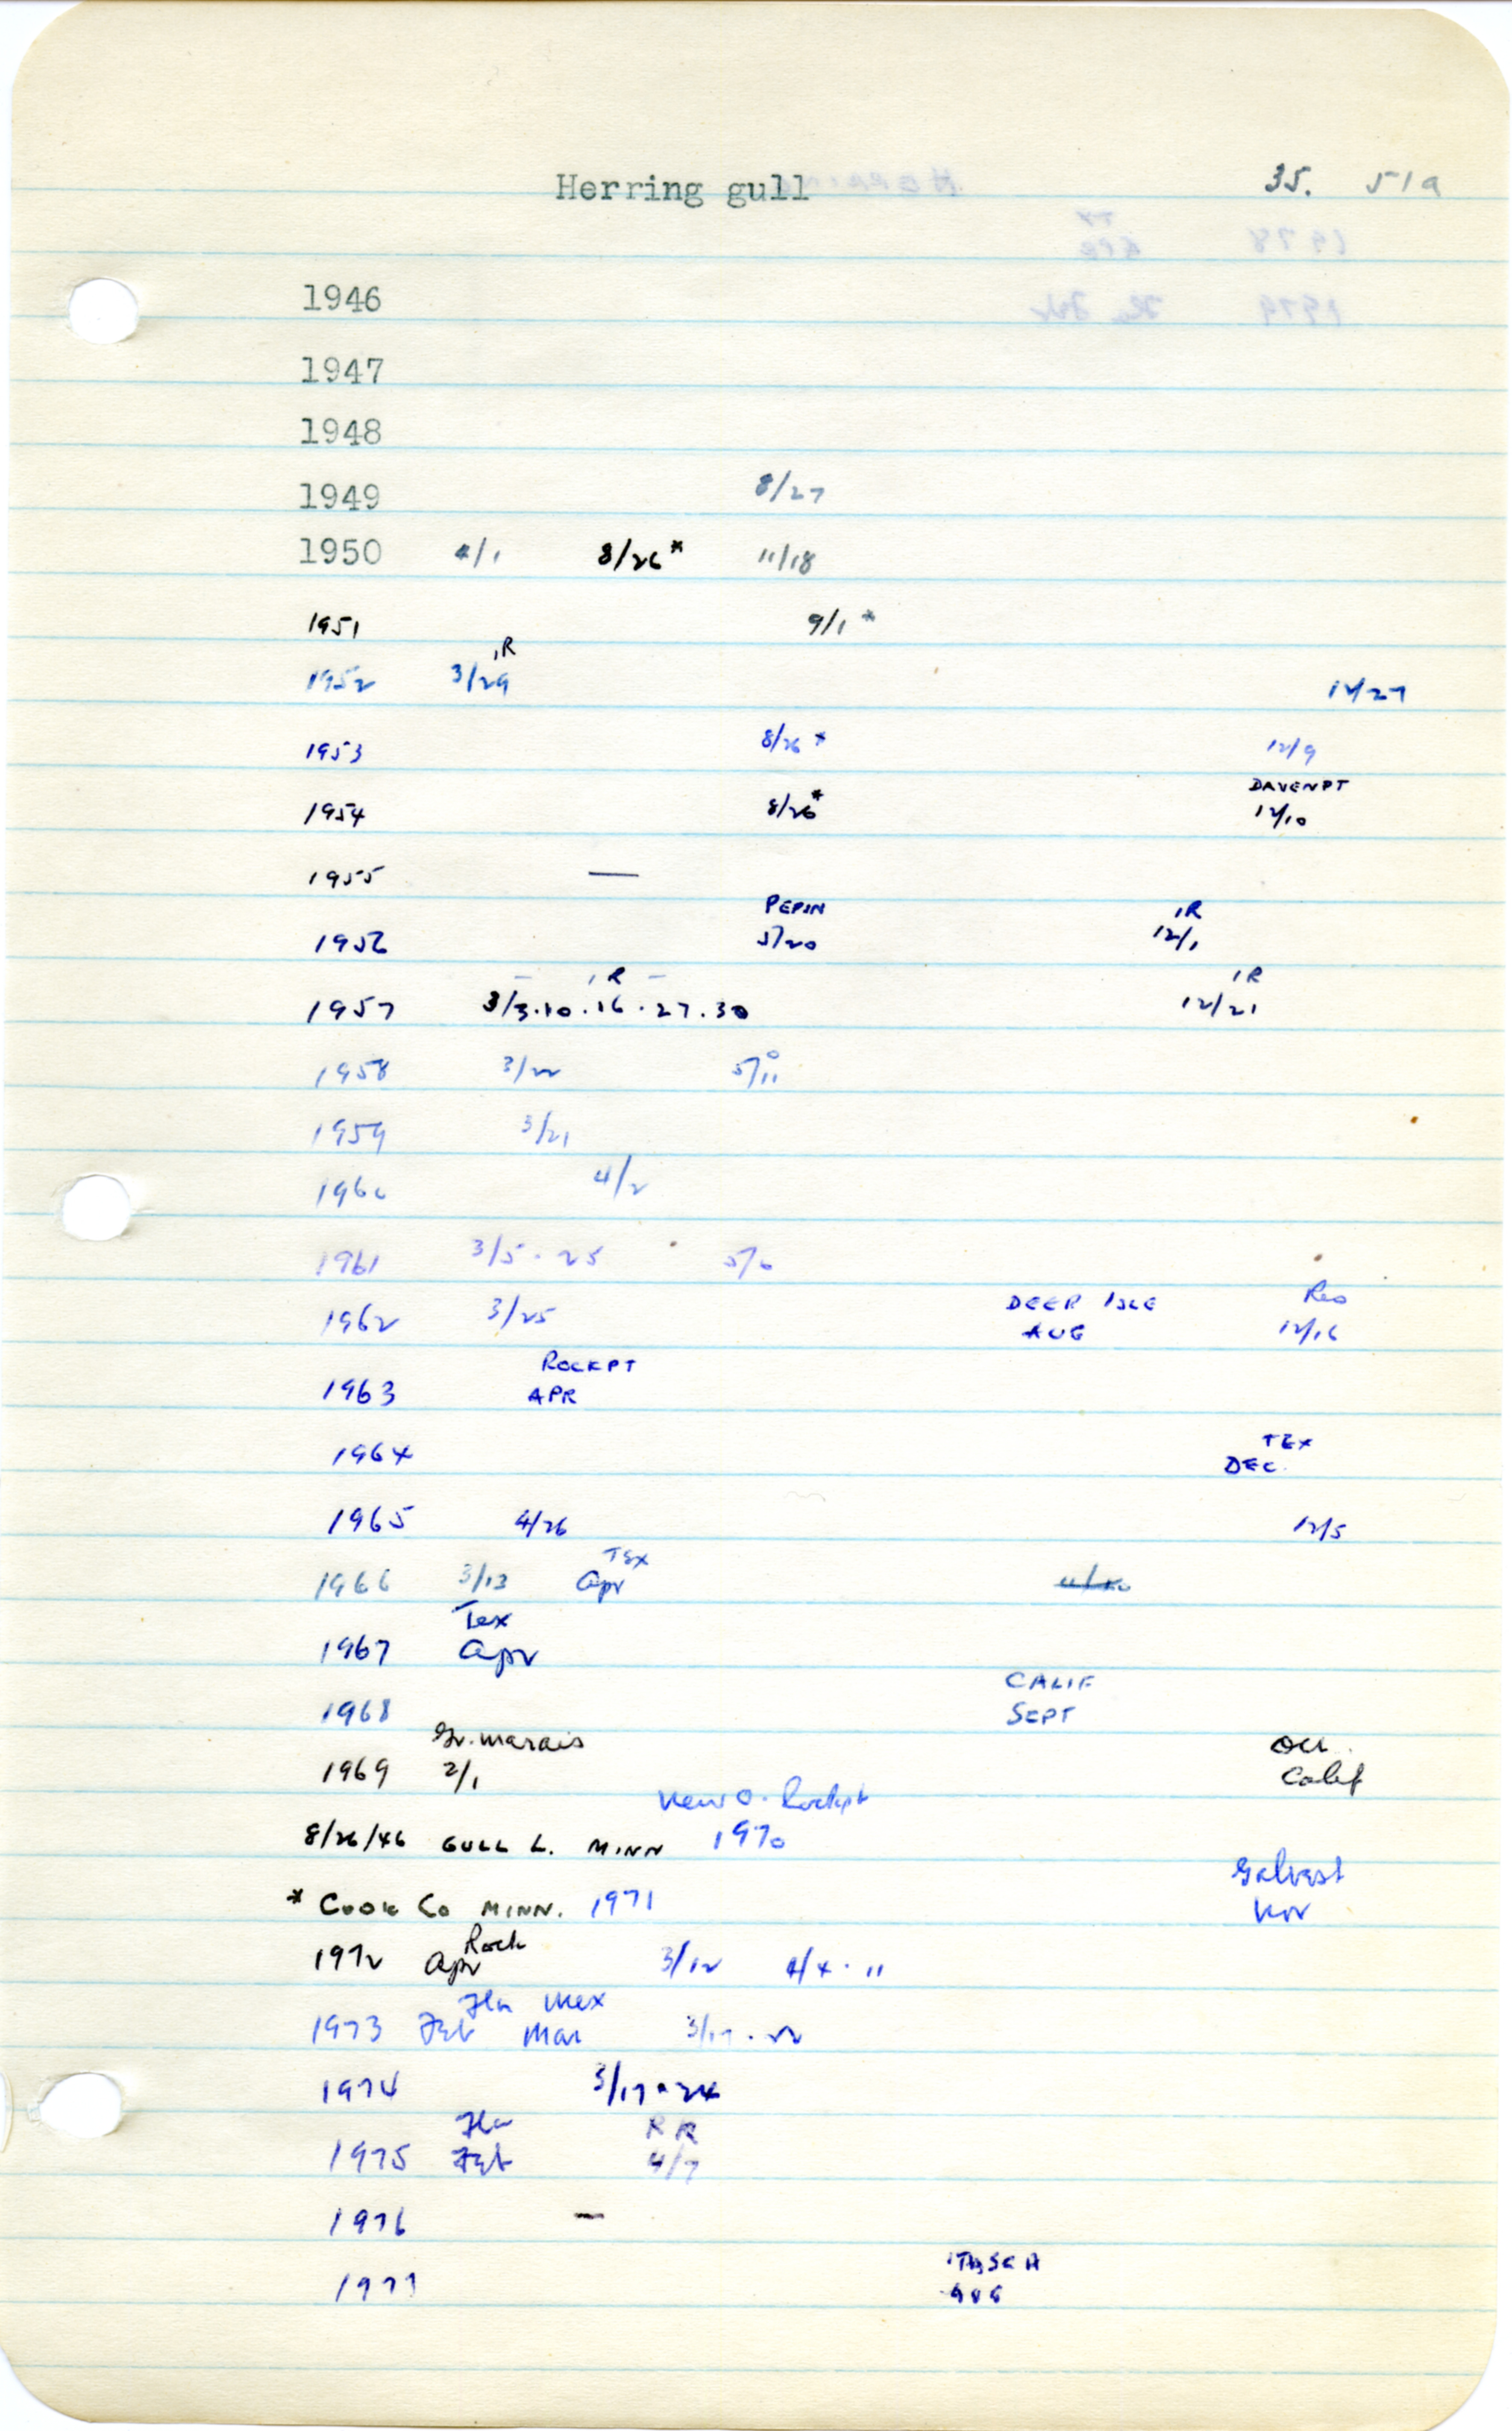 Herring gull 35. 51a
1946
1947
1948
1949 8/27
1950 4/1 8/26* 11/18
1951 9/1 *
IR
1952 3/29 12/27
1953 8/26 * 12/9
DAVENPT
1954 8/26* 12/10
1955 —
PEPIN IR
1956 5/20 12/1
— IR — IR
1957 3/3.10.16.27.30 12/21
1958 3/22 5/11
1959 3/21
1960 4/2
1961 3/5.25 5/6
DEER ISLE Res
1962 3/25 AUG 12/16
ROCKPT
1963 APR
TEX
1964 DEC.
1965 4/26 12/5
TEX
1966 3/13 Apr
Tex
1967 Apr
CALIF
1968 SEPT
Gr. Marais Oct.
1969 2/1 Calif
New O. Rockpt
8/26/46 GULL L. MINN 1970
Galvest
* COOK CO MINN. 1971 Nov
Rock
1972 Apr 3/12 4/4.11
Fla Mex
1973 Feb Mar 3/17.22
1974 3/17.24
Fla R R
1975 Feb 4/7
1976 —
ITASCA
1977 AUG